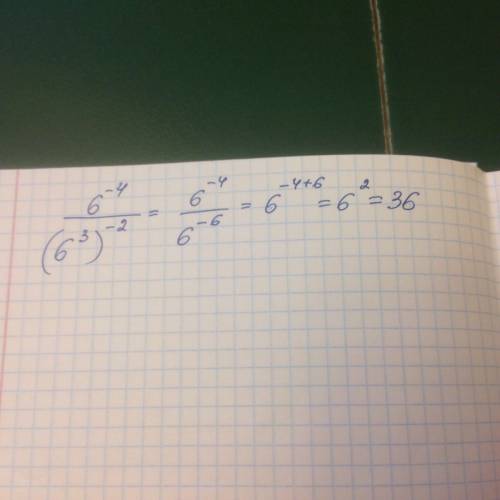 6^-4/(6^3)^-2 = 6^-4/6^-6 = 6^-4+6 = 6^2 = 36